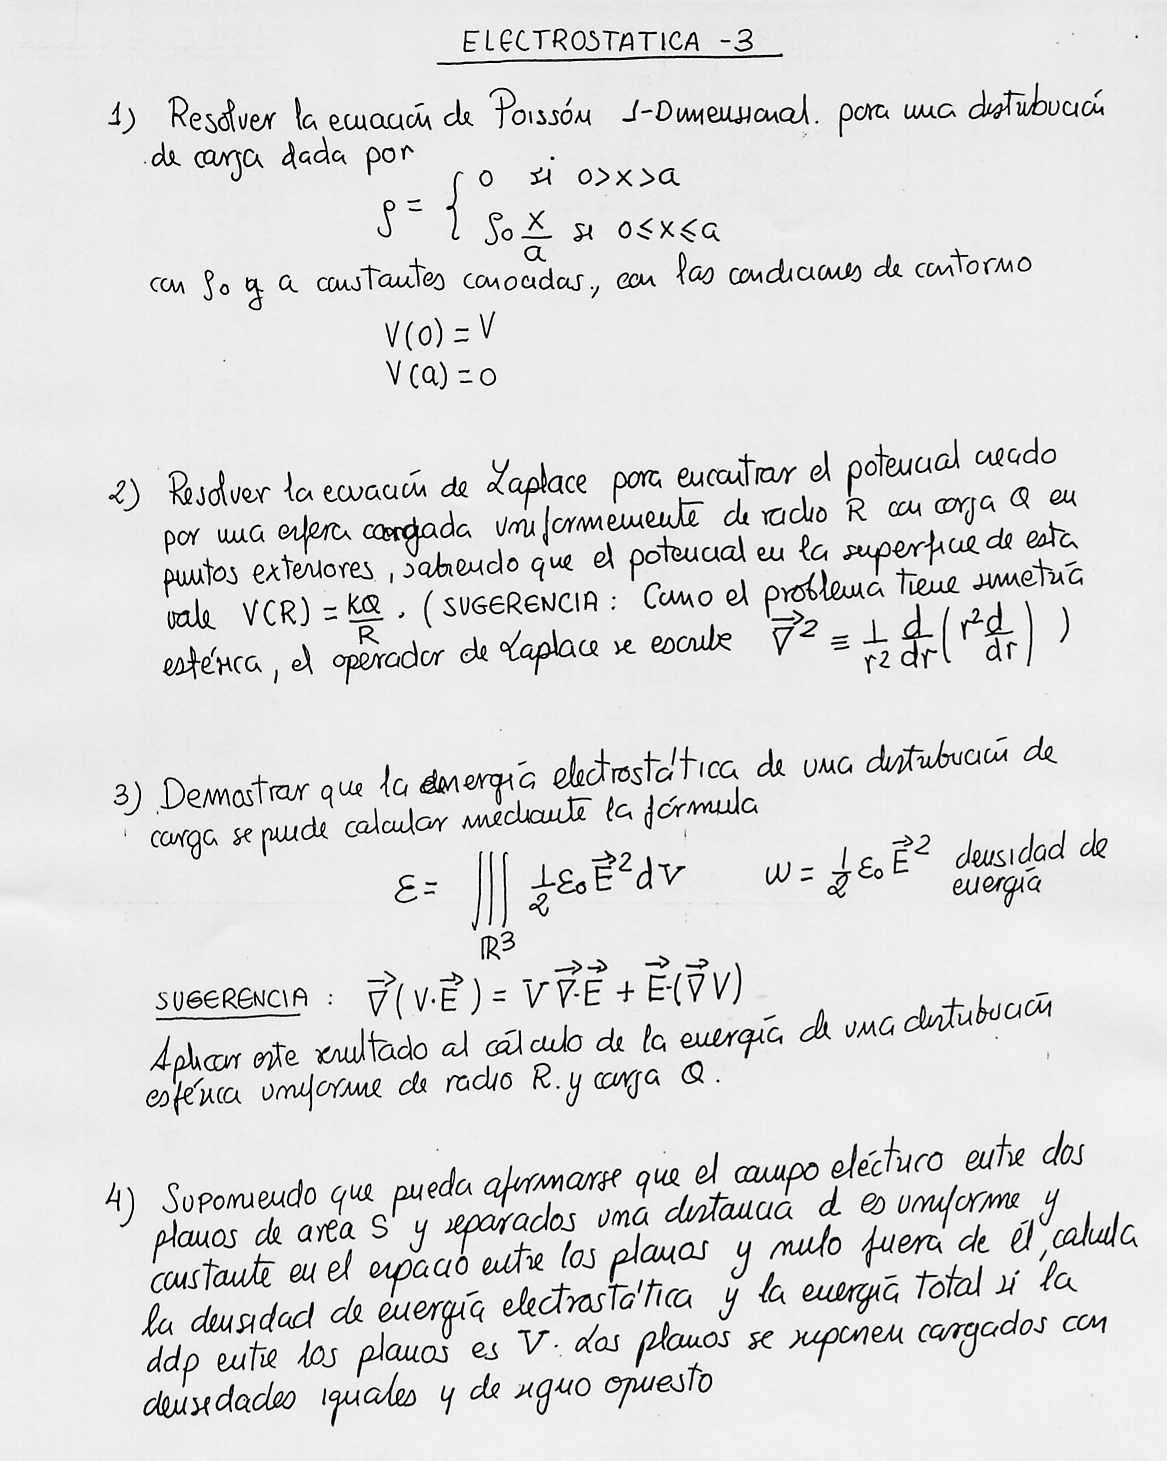 ELECTROSTATICA - 3
1) Resolver la ecuación de Poissón 1-Dimensional. para una distribución
de carga dada por
ρ = { 0 si 0>x>a
ρ₀ x/a si 0≤x≤a
con ρ₀ y a constantes conocidas, con las condiciones de contorno
V(0) = V
V(a) = 0
2) Resolver la ecuación de Laplace para encontrar el potencial creado
por una esfera cargada uniformemente de radio R con carga Q en
puntos exteriores, sabiendo que el potencial en la superficie de esta
vale V(R) = KQ/R. (SUGERENCIA: Como el problema tiene simetría
esférica, el operador de Laplace se escribe ∇⃗² ≡ 1/r² d/dr (r² d/dr) )
3) Demostrar que la energía electrostática de una distribución de
carga se puede calcular mediante la fórmula
ε = ∭_ℝ³ 1/2 ε₀ E⃗² dV    w = 1/2 ε₀ E⃗² densidad de energía
SUGERENCIA: ∇⃗(V·E⃗) = V ∇⃗·E⃗ + E⃗·(∇⃗V)
Aplicar este resultado al cálculo de la energía de una distribución
esférica uniforme de radio R. y carga Q.
4) Suponiendo que pueda afirmarse que el campo eléctrico entre dos
planos de area S y separados una distancia d es uniforme y
constante en el espacio entre los planos y nulo fuera de él, calcula
la densidad de energía electrostática y la energía total si la
ddp entre los planos es V. Los planos se suponen cargados con
densidades iguales y de signo opuesto